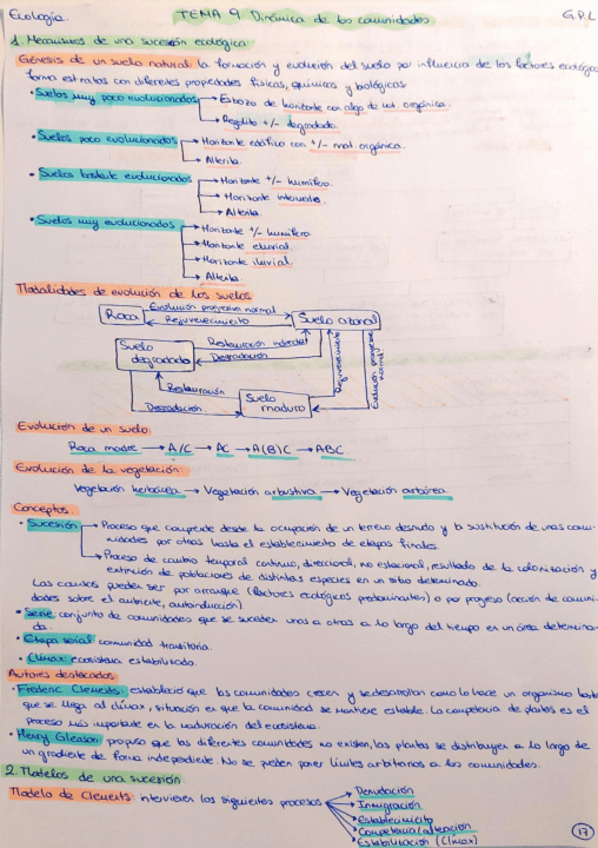 Ecología.
TEMA 9. Dinámica de las comunidades
G.P.L
1. Mecanismos de una sucesión ecológica:
Génesis de un suelo natural: la formación y evolución del suelo por influencia de los factores ecológicos
forma estratos con diferentes propiedades físicas, químicas y biológicas.
• Suelos muy poco evolucionados → Esbozo de horizonte con algo de mat. orgánica.
→ Regolito +/- degradado.
• Suelos poco evolucionados → Horizonte edáfico con +/- mat. orgánica.
→ Alterita.
• Suelos bastante evolucionados → Horizonte +/- humífero.
→ Horizonte intermedio.
→ Alterita.
• Suelos muy evolucionados → Horizonte +/- humífero.
→ Horizonte eluvial.
→ Horizonte iluvial.
→ Alterita.
Modalidades de evolución de los suelos
Roca
Evolución progresiva normal
Rejuvenecimiento
Suelo azonal
Suelo degradado
Restauración indirecta
Degradación
Restauración
Degradación.
Suelo maduro
Rejuvenecimiento
Evolución progresiva normal
Evolución de un suelo:
Roca madre → A/C → AC → A(B)C → ABC.
Evolución de la vegetación:
Vegetación herbácea → Vegetación arbustiva → Vegetación arbórea.
Conceptos:
• Sucesión → Proceso que comprende desde la ocupación de un terreno desnudo y la sustitución de unas comu-
nidades por otras hasta el establecimiento de etapas finales.
→ Proceso de cambio temporal continuo, direccional, no estacional, resultado de la colonización y
extinción de poblaciones de distintas especies en un sitio determinado.
Las causas pueden ser por arranque (factores ecológicos predominantes) o por progreso (acción de comuni-
dades sobre el ambiente, autoinducción)
• Serie: conjunto de comunidades que se suceden unas a otras a lo largo del tiempo en un área determina-
da.
• Etapa serial: comunidad transitoria.
• Clímax: ecosistema estabilizado.
Autores destacados:
• Frederic Clements: estableció que las comunidades crecen y se desarrollan como lo hace un organismo hasta
que se llega al clímax, situación en que la comunidad se mantiene estable. La competencia de plantas es el
proceso más importante en la maduración del ecosistema.
• Henry Gleason: propuso que las diferentes comunidades no existen, las plantas se distribuyen a lo largo de
un gradiente de forma independiente. No se pueden poner límites arbitrarios a las comunidades.
2. Modelos de una sucesión:
Modelo de Clements: intervienen los siguientes procesos → Denudación
→ Inmigración
→ Establecimiento
→ Competencia/alteración
→ Estabilización (Clímax)
17